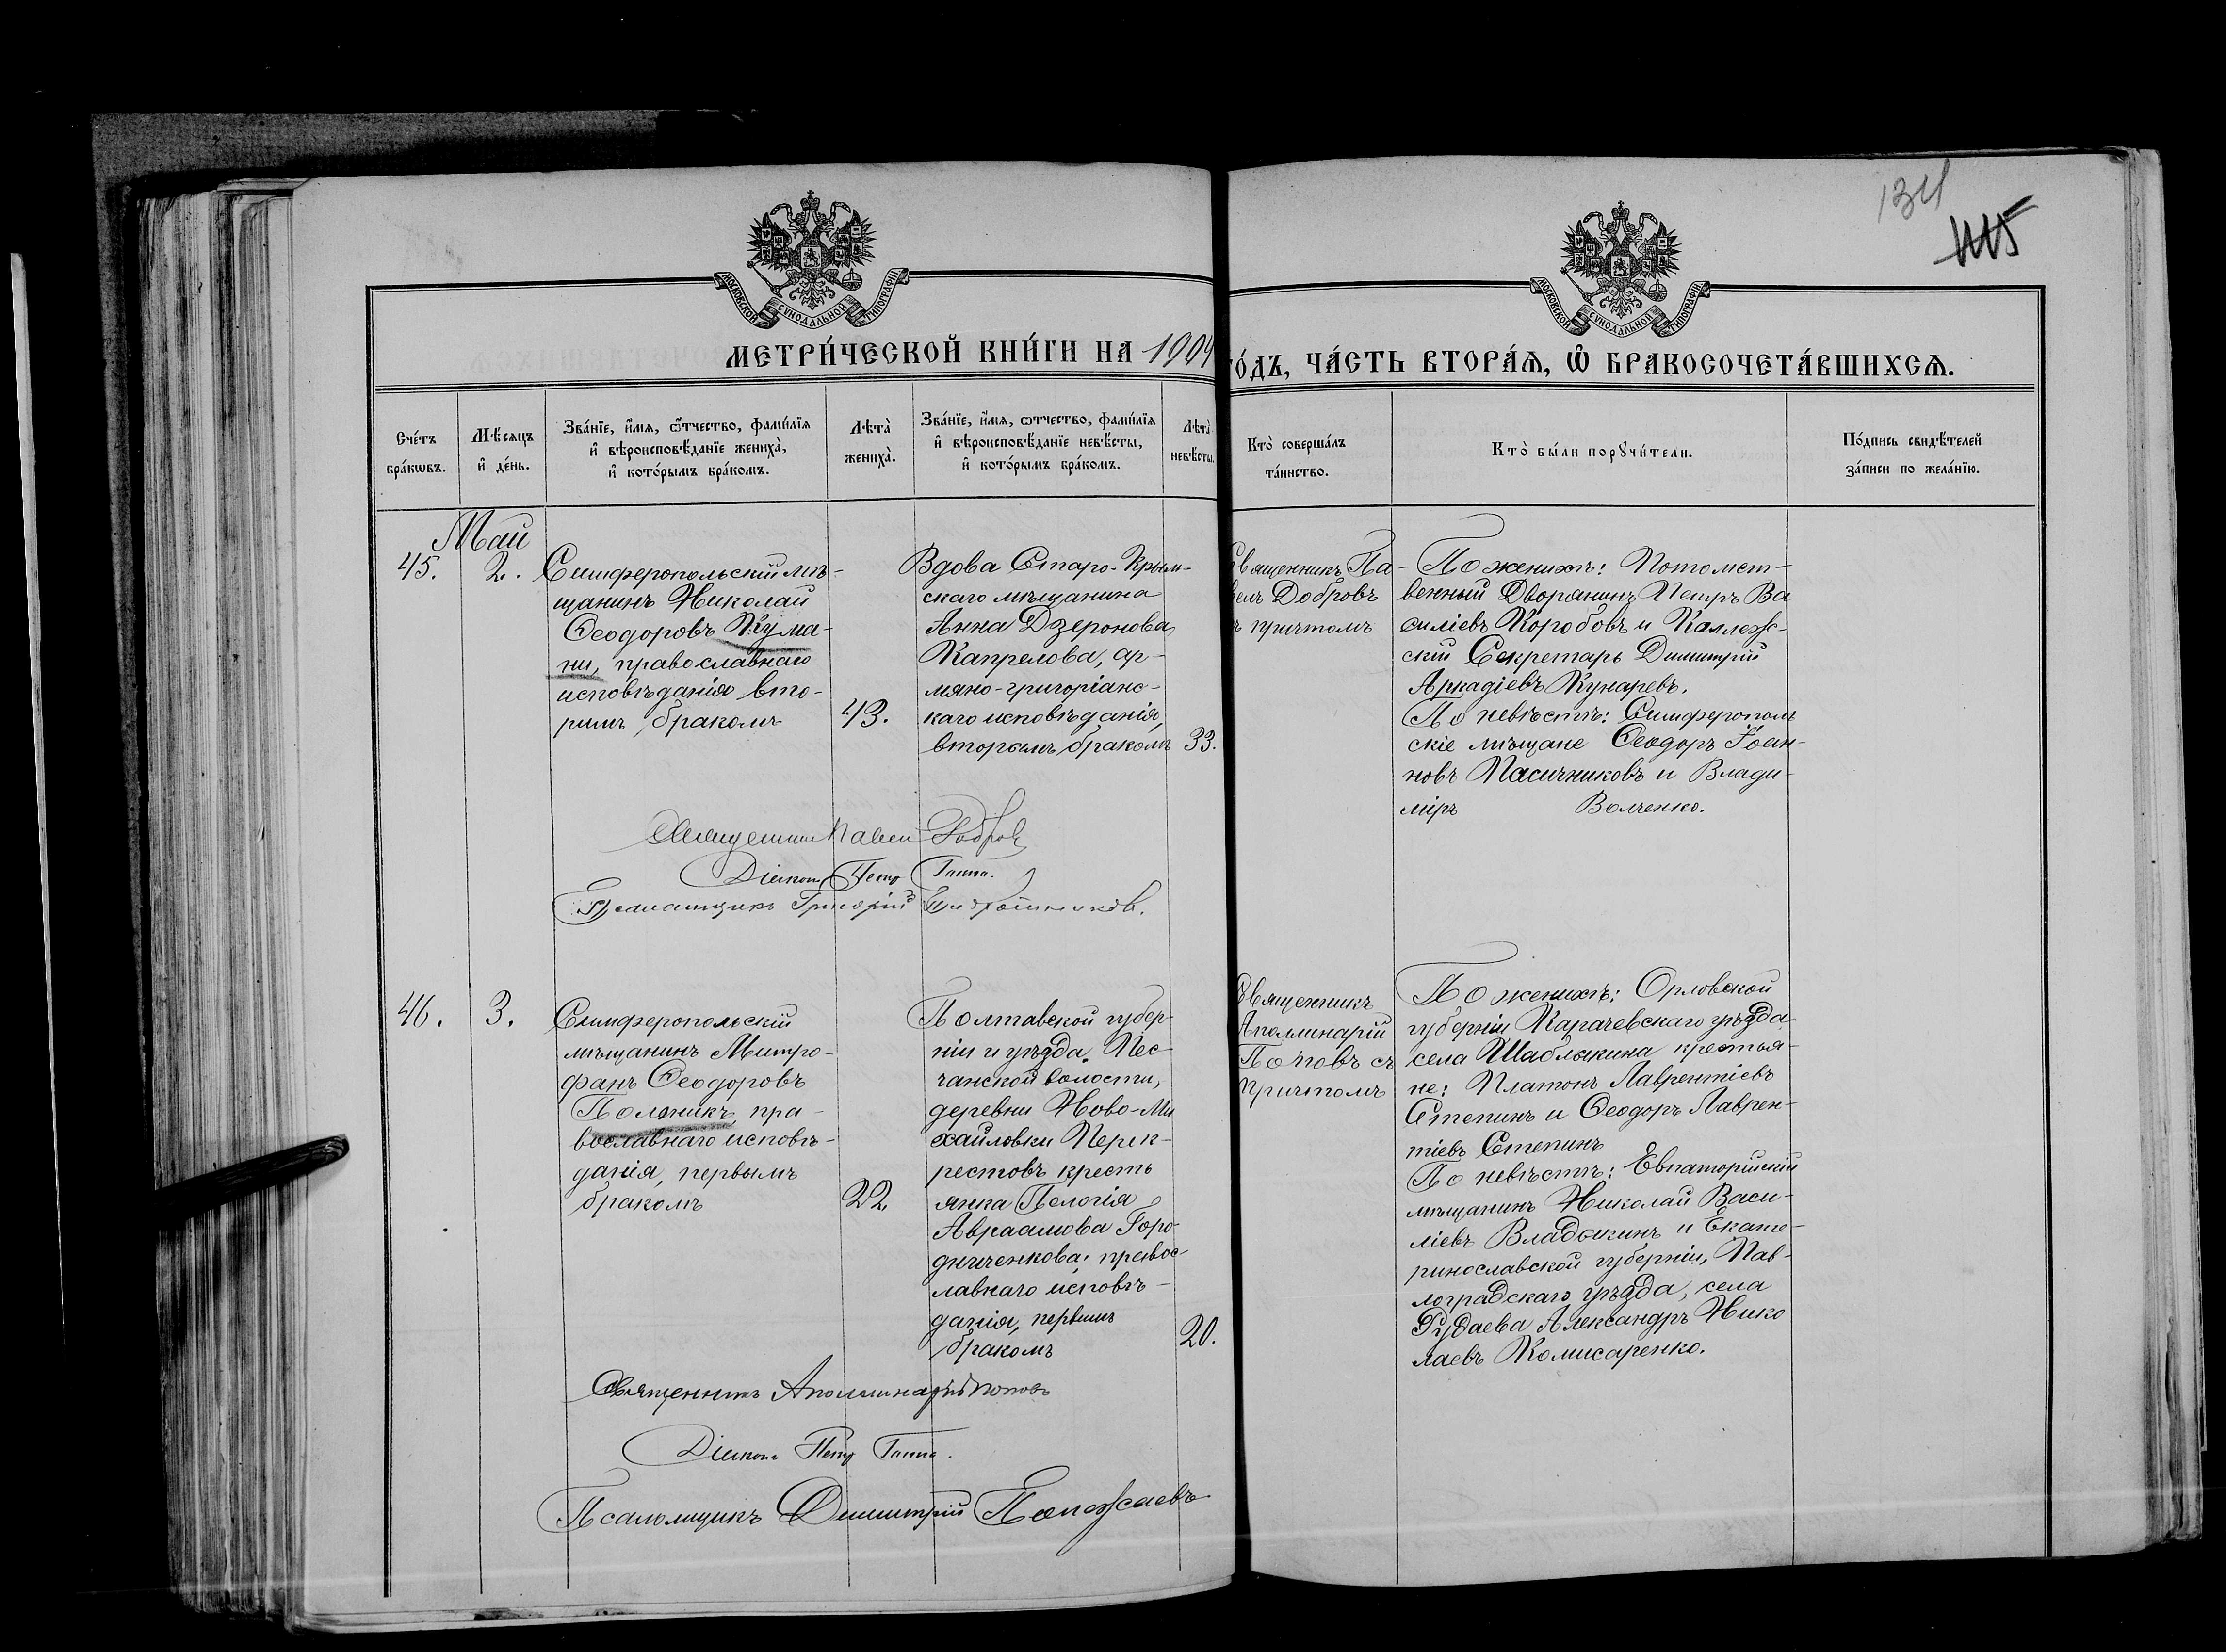 134
115
МОСКОВСКОЙ СУНОДАЛЬНОЙ ТИПОГРАФІИ
МОСКОВСКОЙ СУНОДАЛЬНОЙ ТИПОГРАФІИ
МЕТРИ́ЧЕСКОЙ КНИ́ГИ НА 1904
ГО́ДЪ, ЧА́СТЬ ВТОРА́Ѧ, Ѽ БРАКОСОЧЕТА́ВШИХСѦ.
Сче́тъ
бра́кѡвъ.
Мѣ́сяцъ
и҆ де́нь.
Зва́нїе, и҆́мя, ѻ҆́тчество, фами́лїя
и҆ вѣроисповѣ́данїе жениха̀,
и҆ кото́рымъ бра́комъ.
Лѣта̀
жениха̀.
Зва́нїе, и҆́мя, ѻтчество, фами́лїя
и҆ вѣроисповѣ́данїе невѣ́сты,
и҆ кото́рымъ бра́комъ.
Лѣта̀
невѣ́сты.
Кто̀ соверша́лъ
та́инство.
Кто̀ бы́ли порꙋчи́тели.
По́дпись свидѣ́телей
за́писи по жела́нїю.
Май
45.
2.
Симферопольскій мѣ-
щанинъ Николай
Ѳеодоровъ Кума-
ни, православнаго
исповѣданія вто-
римъ бракомъ
43.
Вдова Старо-Крым-
скаго мѣщанина
Анна Дзеронова
Капрелова, ар-
мяно-григоріанс-
каго исповѣданія,
вторымъ бракомъ
33.
Священникъ Па-
велъ Добровъ
съ причтомъ
По женихѣ: Потомст-
венный Дворянинъ Петръ Ва
силіевъ Коробовъ и Коллеж-
скій Секретарь Димитрій
Аркадіевъ Кунаревъ.
По невѣстѣ: Симферополь
скіе мѣщане Ѳеодоръ Іоан-
новъ Пасичниковъ и Влади-
міръ Волченко.
Священник Павел Добров
Діякон Петр Ганна.
Псаломщикъ Григорій
46.
3.
Симферопольскій
мѣщанинъ Митро-
фанъ Ѳеодоровъ
Поляникъ, пра-
вославнаго исповѣ-
данія, первымъ
бракомъ
22
Полтавской губер-
ніи и уѣзда, Пес-
чанской волости,
деревни Ново-Ми
хайловки Перек-
рестовъ кресть
янка Пелагія
Авраамова Горо-
дниченкова, правос-
лавнаго исповѣ-
данія, первымъ
бракомъ
20.
Священникъ
Аполлинарій
Поповъ съ
причтомъ
По женихѣ: Орловской
губерніи Карачевскаго уѣзда
села Шаблыкина крестья-
не: Платонъ Лаврентіевъ
Степинъ и Ѳеодоръ Лаврен-
тіевъ Степинъ
По невѣстѣ: Евпаторійскій
мѣщанинъ Николай Васи-
ліевъ Владыкинъ и Екате-
ринославской губерніи, Пав-
лоградскаго уѣзда, села
Рудаева Александръ Нико
лаевъ Комисаренко.
Священникъ Аполлинарій Поповъ
Діякон Петр Ганна.
Псаломщикъ Димитрій Полежаевъ